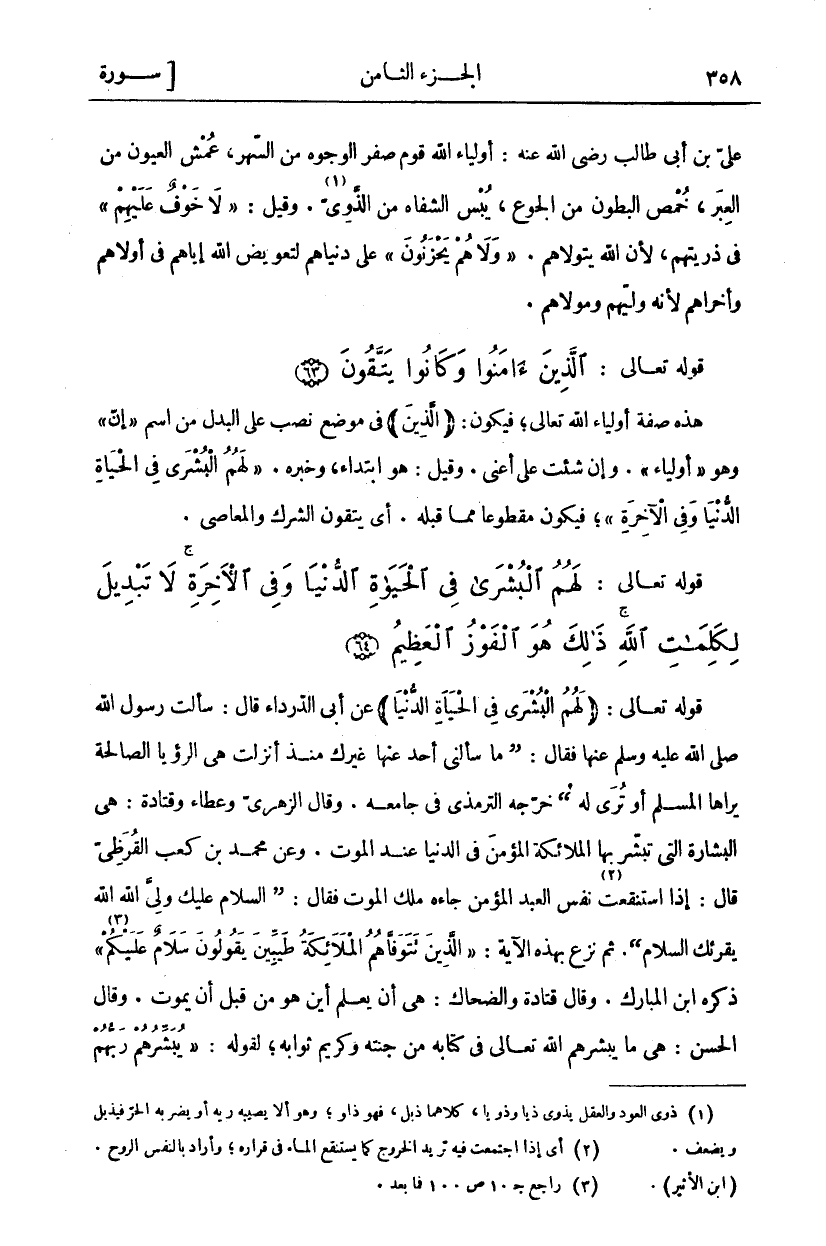 ٣٥٨ الجزء الثامن [ سورة
علىّ بن أبى طالب رضى الله عنه : أولياء الله قوم صفر الوجوه من السّهر، عُمْش العيون من
العِبَر ، خُمْص البطون من الجوع ، يُبْس الشفاه من الذَّوِىّ (١) . وقيل : « لَا خَوْفٌ عَلَيْهِمْ »
فى ذريتهم، لأن الله يتولاهم . « وَلَا هُمْ يَحْزَنُونَ » على دنياهم لتعويض الله إياهم فى أولاهم
وأخراهم لأنه وليّهم ومولاهم .
قوله تعالى : ٱلَّذِينَ ءَامَنُوا وَكَانُوا يَتَّقُونَ ۝٦٣
هذه صفة أولياء الله تعالى؛ فيكون: ﴿ الَّذِينَ ﴾ فى موضع نصب على البدل من اسم «إنّ»
وهو « أولياء » . وإن شئت على أعنى . وقيل : هو ابتداء، وخبره . « لَهُمُ الْبُشْرَى فِى الْحَيَاةِ
الدُّنْيَا وَفِى الْآخِرَةِ »؛ فيكون مقطوعا مما قبله . أى يتقون الشرك والمعاصى .
قوله تعالى : لَهُمُ ٱلْبُشْرَىٰ فِى ٱلْحَيَوٰةِ ٱلدُّنْيَا وَفِى ٱلْأَخِرَةِ ۚ لَا تَبْدِيلَ
لِكَلِمَٰتِ ٱللَّهِ ۚ ذَٰلِكَ هُوَ ٱلْفَوْزُ ٱلْعَظِيمُ ۝٦٤
قوله تعالى : ﴿ لَهُمُ الْبُشْرَى فِى الْحَيَاةِ الدُّنْيَا ﴾ عن أبى الدّرداء قال : سألت رسول الله
صلى الله عليه وسلم عنها فقال : ” ما سألنى أحد عنها غيرك منذ أنزلت هى الرؤيا الصالحة
يراها المسلم أو تُرَى له “ خرّجه الترمذى فى جامعه . وقال الزهرىّ وعطاء وقتادة : هى
البشارة التى تبشّر بها الملائكة المؤمنَ فى الدنيا عند الموت . وعن محمد بن كعب القُرَظِىّ
قال : إذا استنقعت (٢) نفس العبد المؤمن جاءه ملك الموت فقال : ” السلام عليك ولىَّ الله الله
يقرئك السلام“. ثم نزع بهذه الآية : « الَّذِينَ تَتَوَفَّاهُمُ الْمَلَائِكَةُ طَيِّبِينَ يَقُولُونَ سَلَامٌ عَلَيْكُمْ (٣) »
ذكره ابن المبارك . وقال قتادة والضحاك : هى أن يعلم أين هو من قبل أن يموت . وقال
الحسن : هى ما يبشرهم الله تعالى فى كتابه من جنته وكريم ثوابه؛ لقوله : « يُبَشِّرُهُمْ رَبُّهُمْ
(١) ذوى العود والعقل يذوى ذيا وذويا، كلاهما ذبل، فهو ذاو ؛ وهو ألا يصيبه ريه أو يضربه الحرّ فيذبل
ويضعف . (٢) أى إذا اجتمعت فيه تريد الخروج كما يستنقع الماء فى قراره؛ وأراد بالنفس الروح .
(ابن الأثير) . (٣) راجع جـ ١٠ ص ١٠٠ فما بعد .